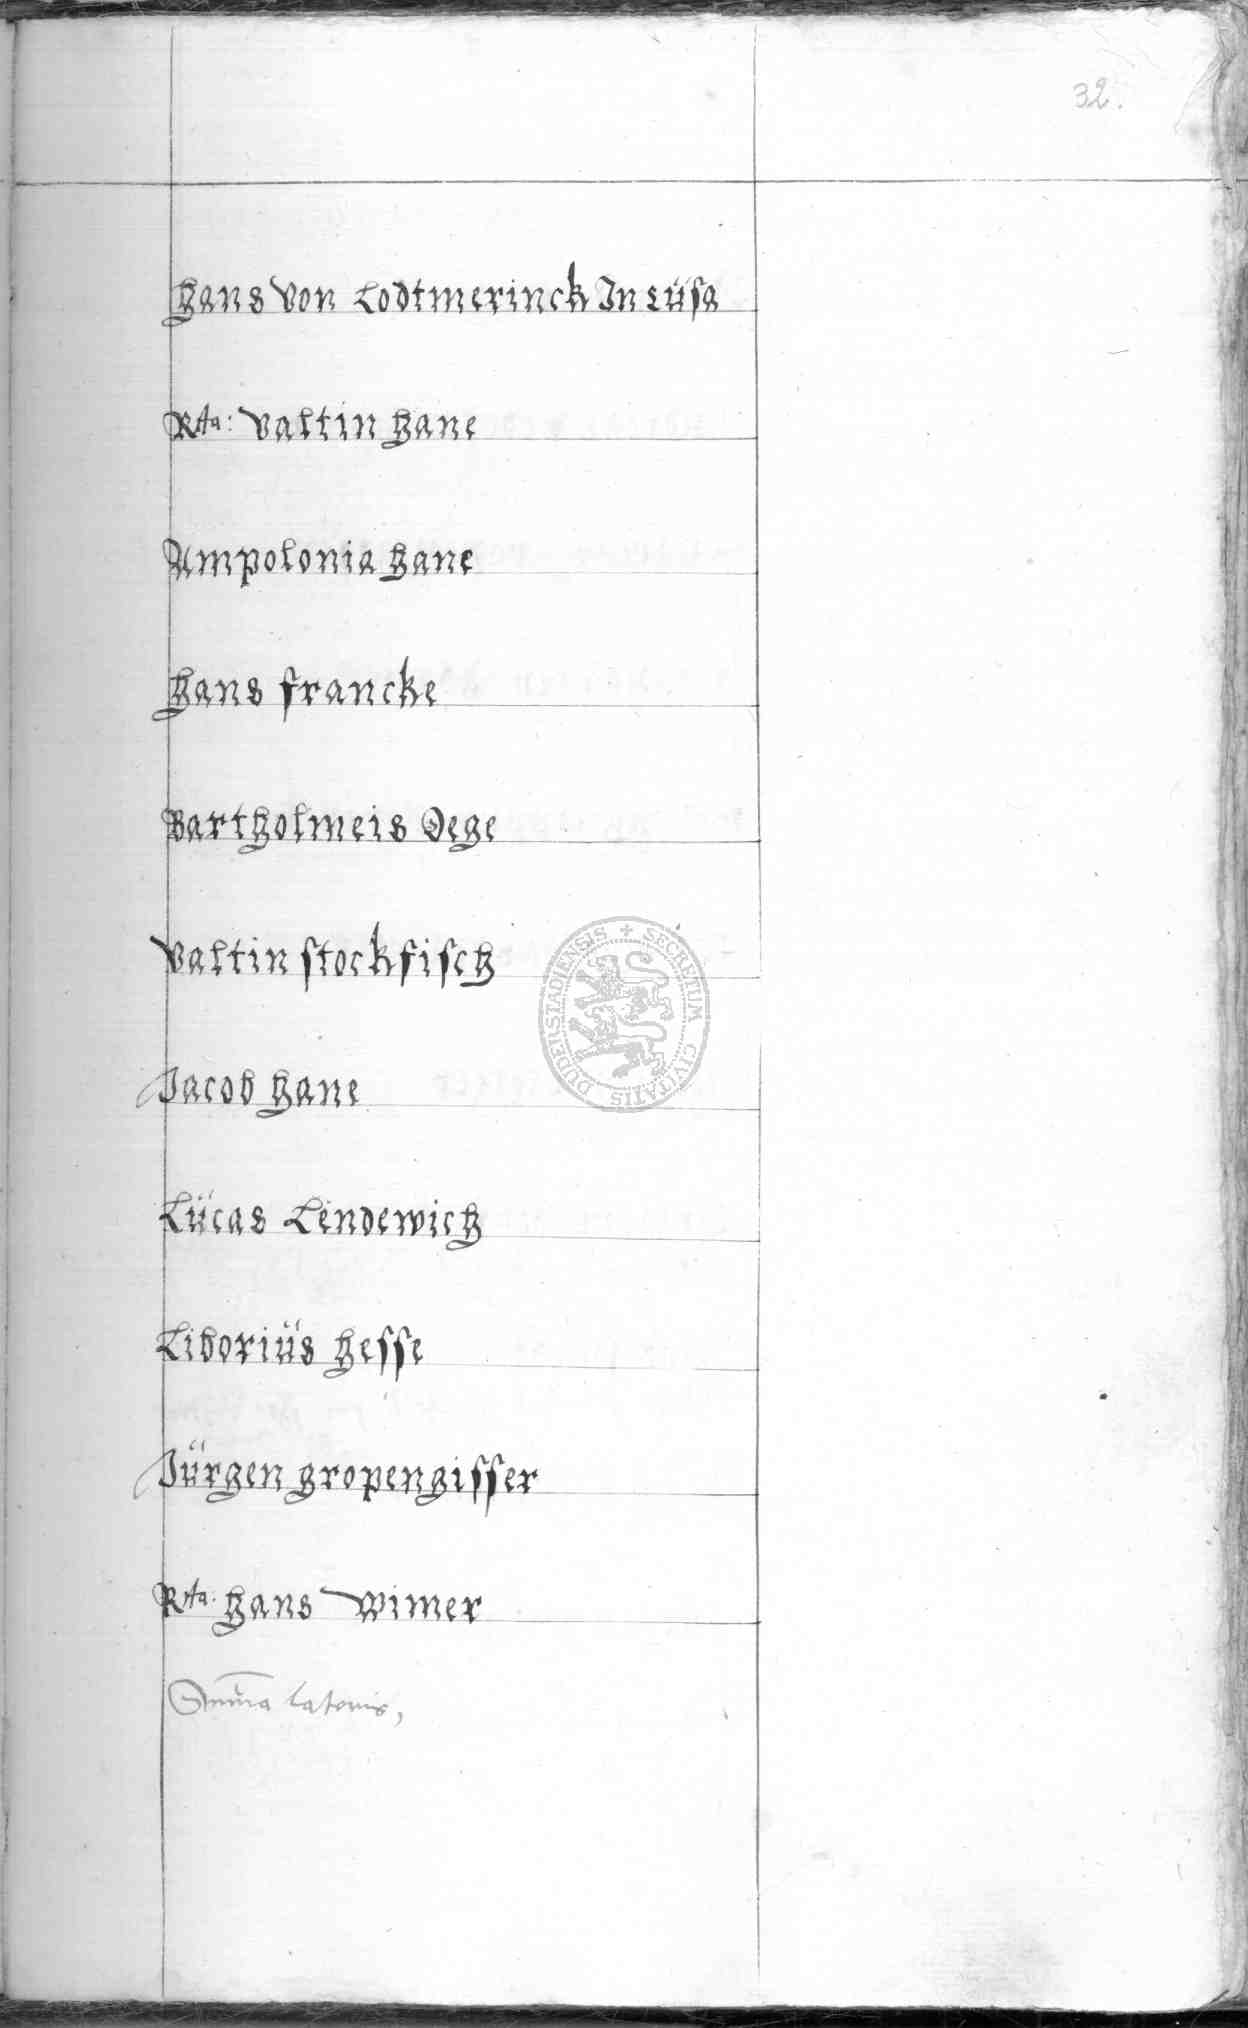 32.
Hans Von Lodtmerinck In Lüsa
Rta: Valtin Hane
Ampolonia Hane
Hans francke
Bartholmeis Dege
Valtin stockfisch
SECRETUM CIVITATIS DUDERSTADIENSIS +
Jacob Hane
Lücas Lendewich
Liborius Hesse
Jürgen gropengisser
Rta. Hans Wimer
Summa lateris,